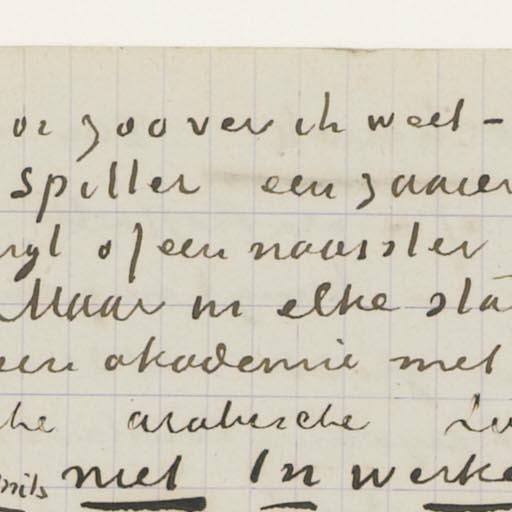 or zoover ik weet -
spitter een zaaier
of een naaister
Maar in elke sta
een akademie met
che arabische
mits niet In werke